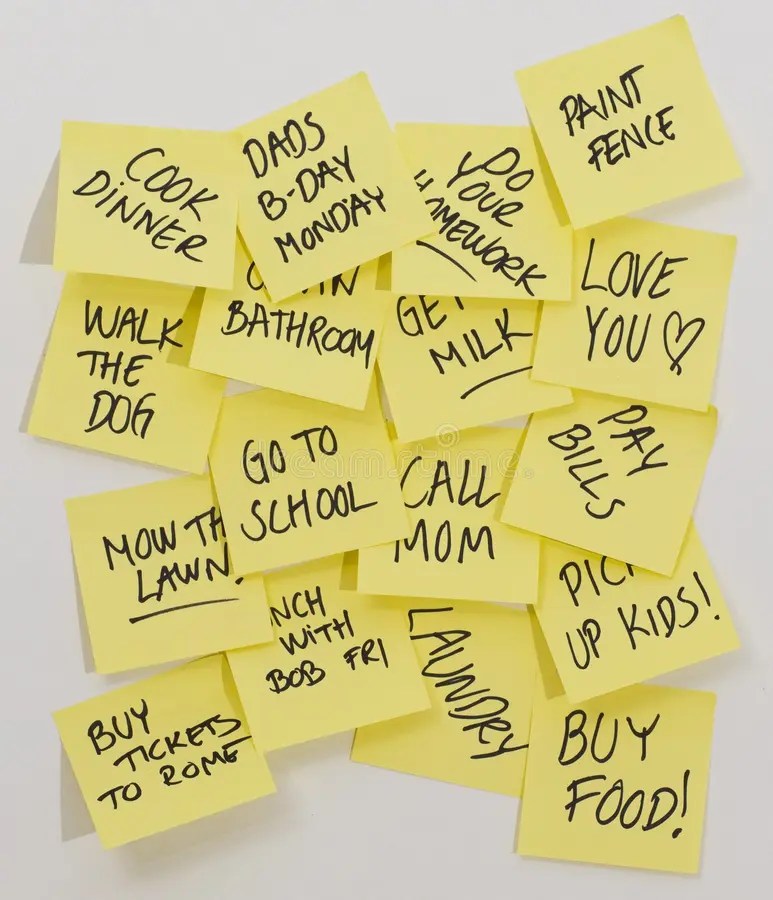 PAINT
FENCE
COOK
DINNER
DADS
B-DAY
MONDAY
DO
YOUR
HOMEWORK
LOVE
YOU♡
WALK
THE
DOG
BATHROOM
GET
MILK
GO TO
SCHOOL
CALL
MOM
PAY
BILLS
MOW TH
LAWN!
NCH
WITH
BOB FRI
LAUNDRY
PIC
UP KIDS!
BUY
TICKETS
TO ROME
BUY
FOOD!
dreamstime